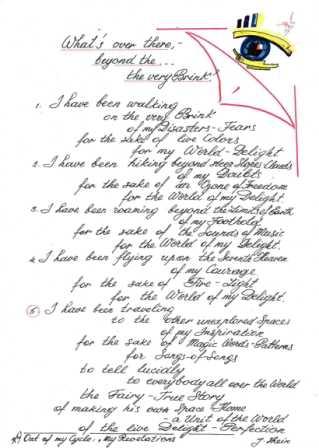 What's over there,-
beyond the...
the very Brink!
1. I have been walking
on the very Brink
of my Disasters - Tears
for the sake of live Colors
for my World - Delight
2. I have been hiking beyond Steep Slopes Clouds
of my Doubts
for the sake of an Ozone of Freedom
for the World of my Delight.
3. I have been roaming beyond the Limits of Earth
of my Footholds
for the sake of the Sounds of Music
for the World of my Delight.
4. I have been flying upon the Seventh Heaven
of my Courage
for the sake of Fire - Light
for the World of my Delight.
5. I have been traveling
to the other unexplored Spaces
of my Inspiration
for the sake of Magic Words - Patterns
for Songs-of-Songs
to tell lucidly
to everybody all over the World
the Fairy - True Story
of making his own Space - Home
- a Unit of the World
of the live Delight - Perfection
Out of my Cycle: "My Revelations"